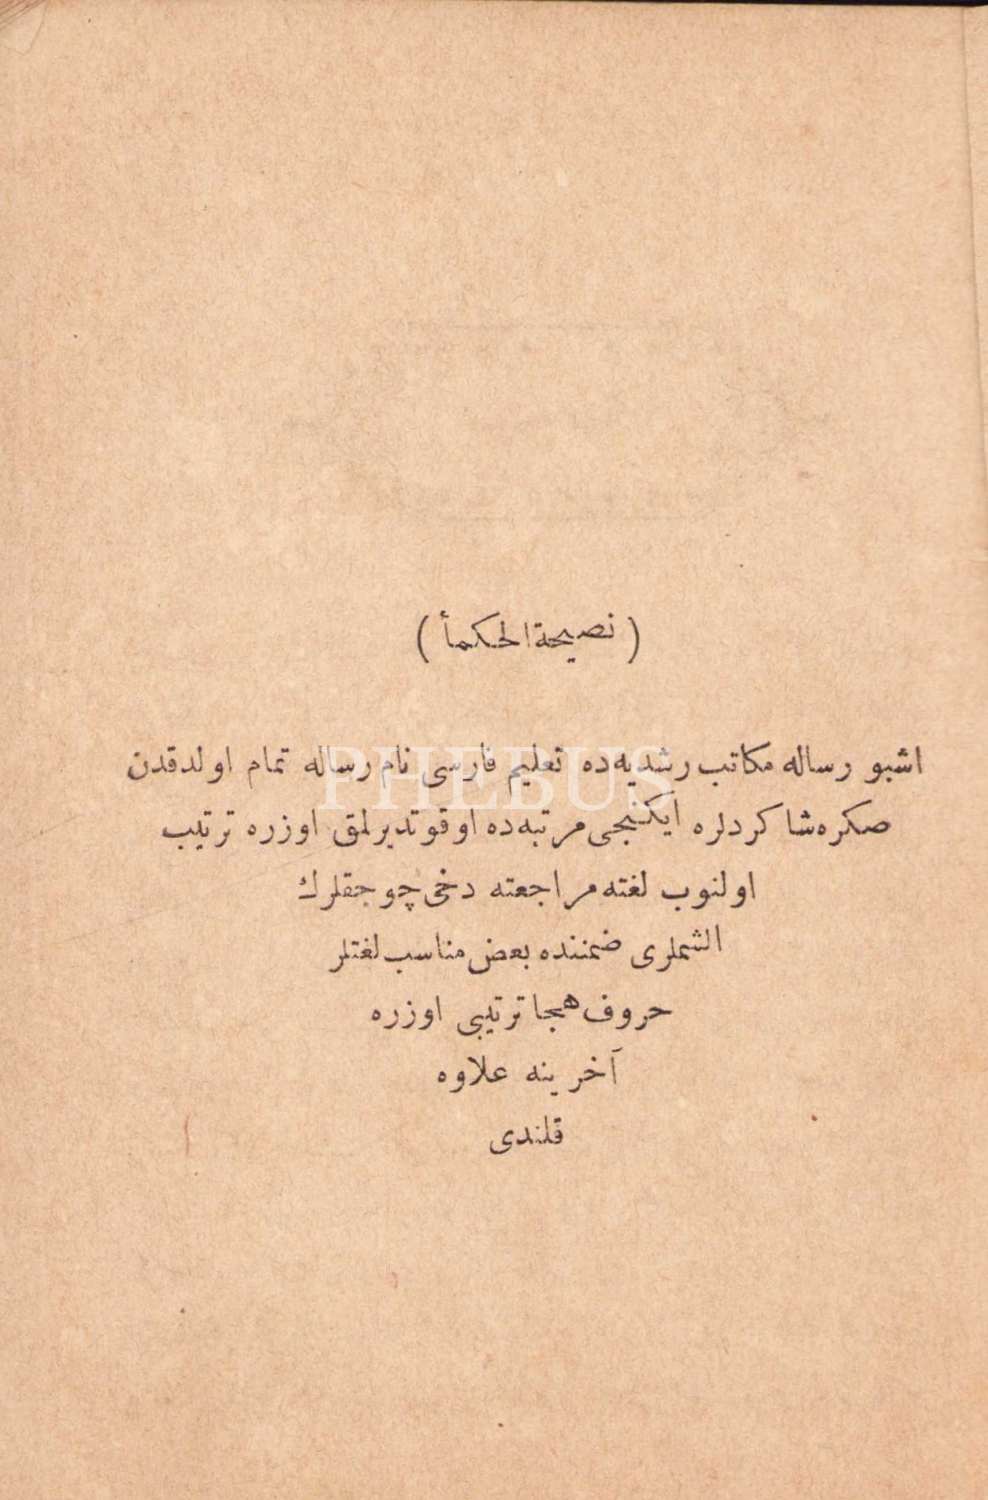 ( نصيحة الحكمأ )
اشبو رساله مكاتب رشديه ده تعليم فارسى نام رساله تمام اولدقدن
PHEBUS
صكره شاكردلره ايكنجى مرتبه ده اوقوتديرلمق اوزره ترتيب
اولنوب لغته مراجعته دخى چوجقلرك
الشملرى ضمننده بعض مناسب لغتلر
حروف هجا ترتيبى اوزره
آخرينه علاوه
قلندى